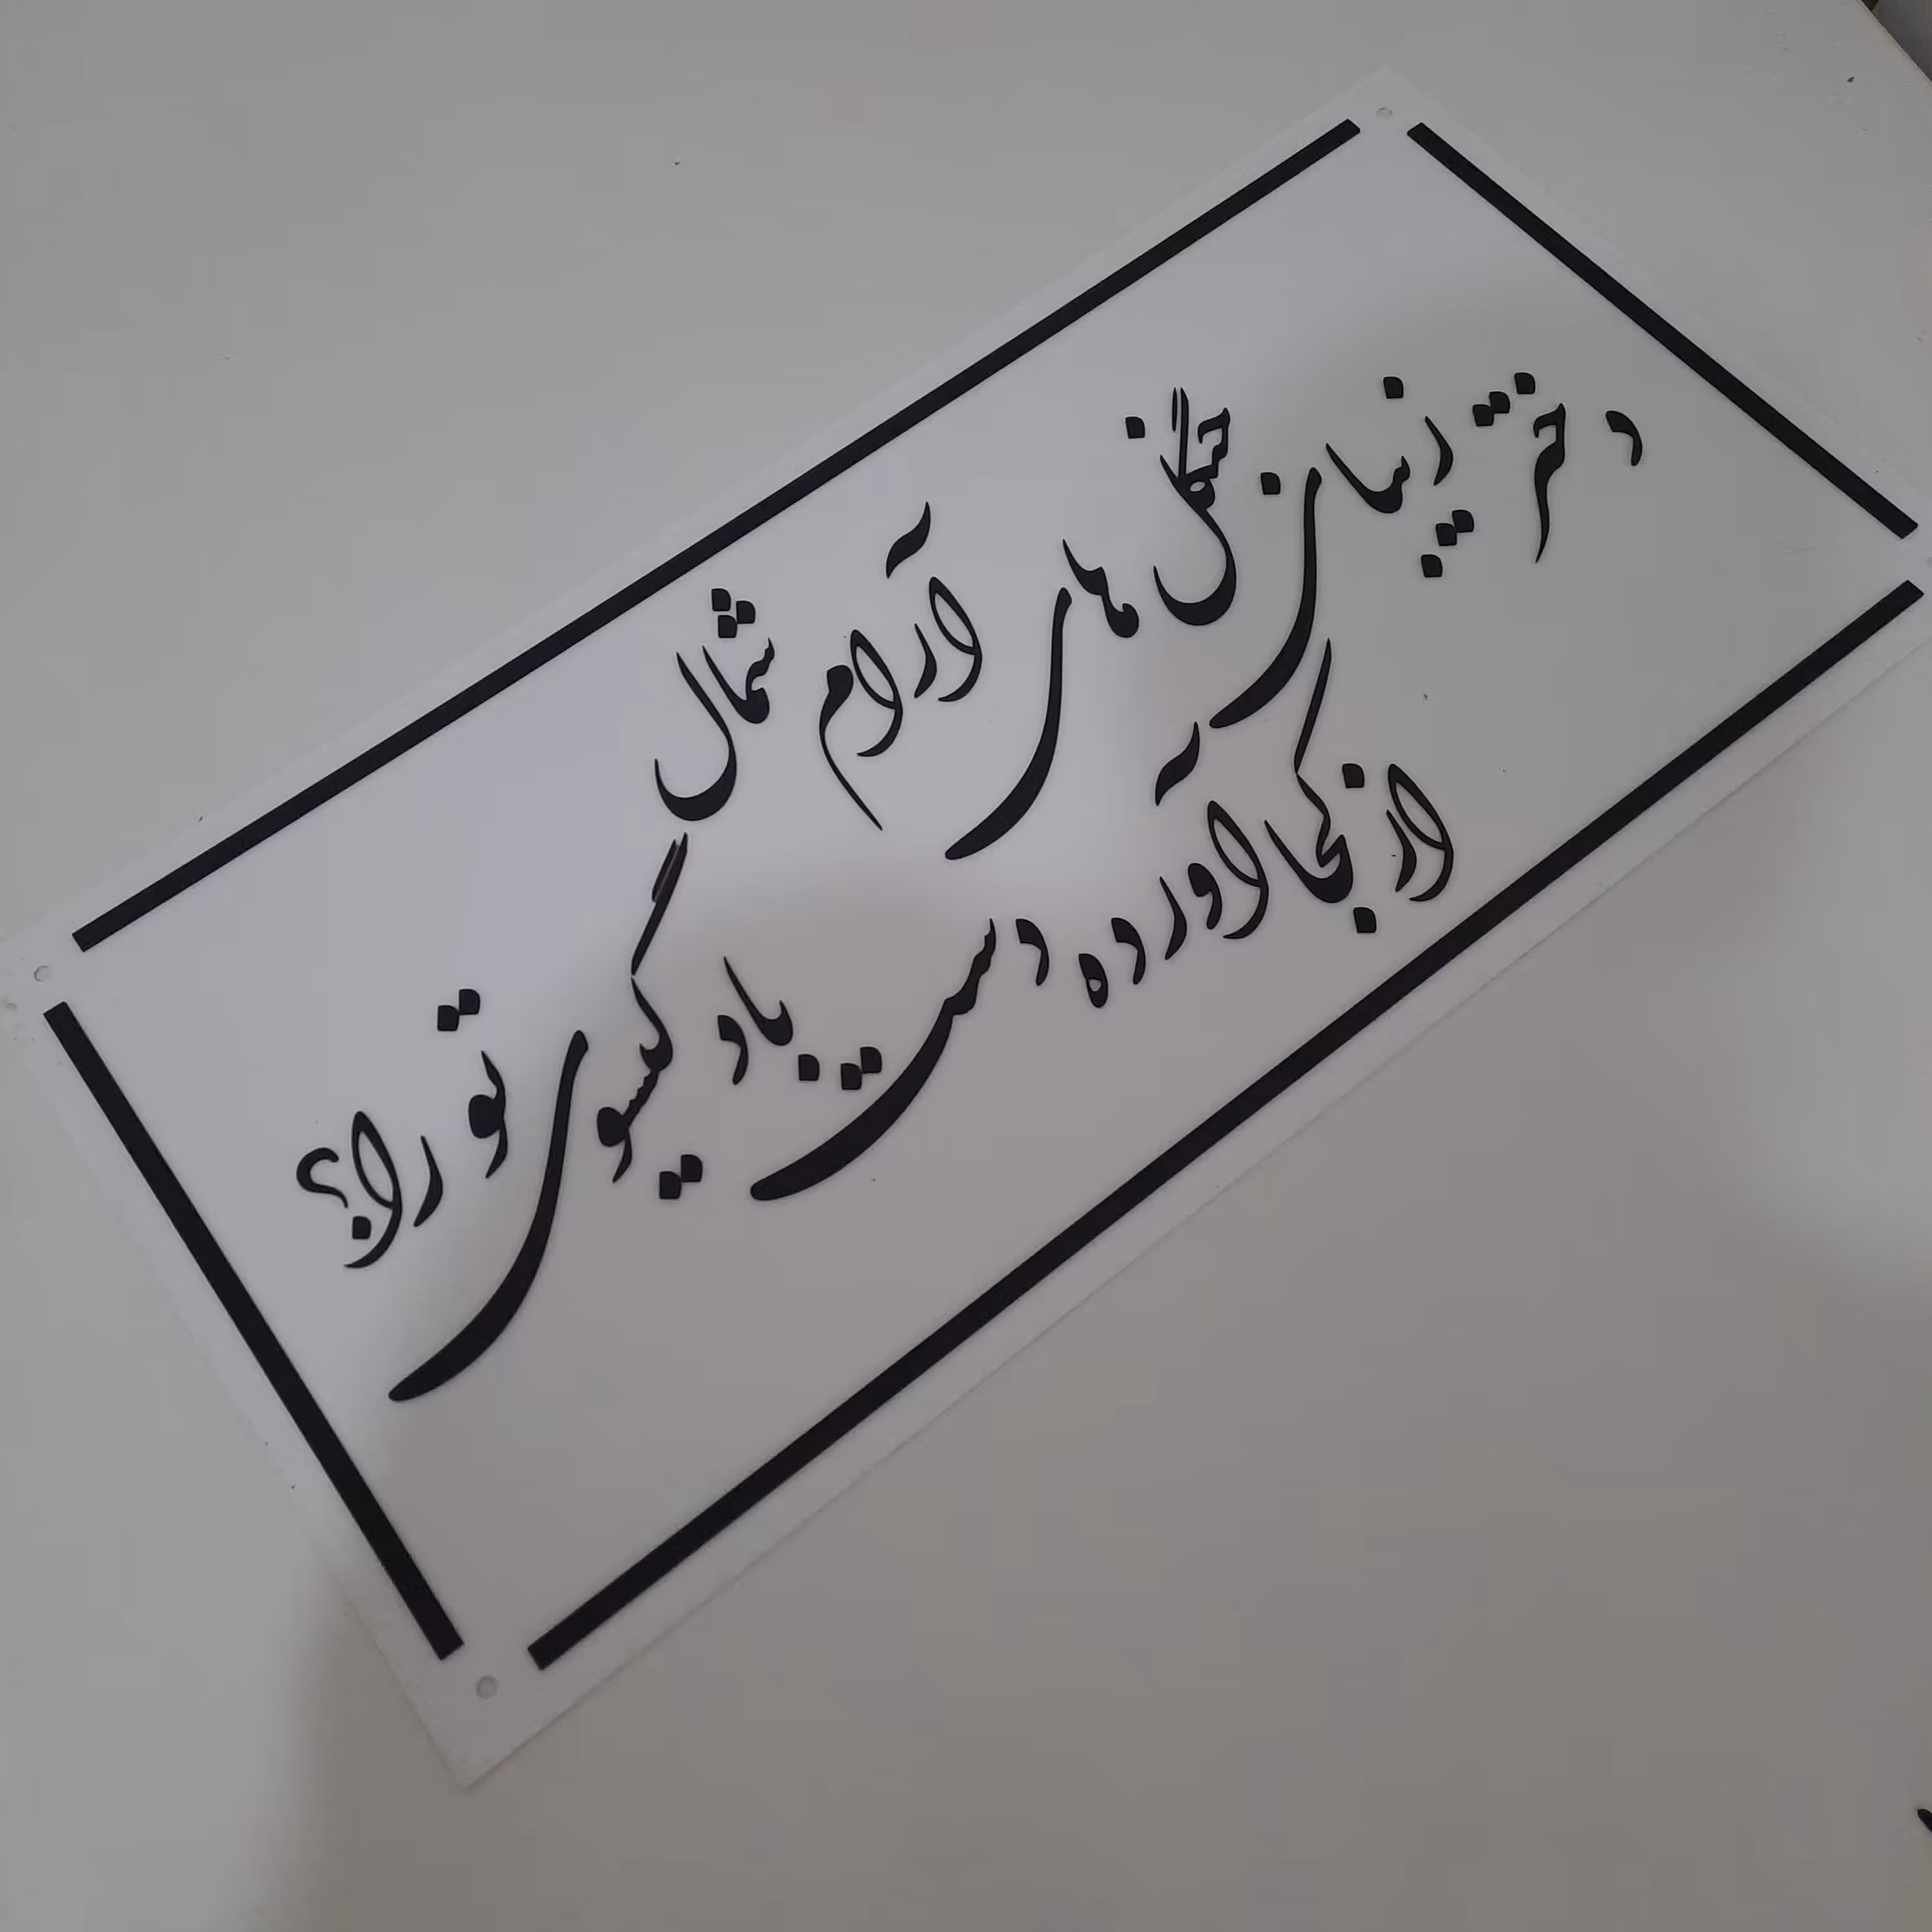 دختر زیبای جنگل های آرام شمال
از کجا آورده دست باد گیسوی تو را؟